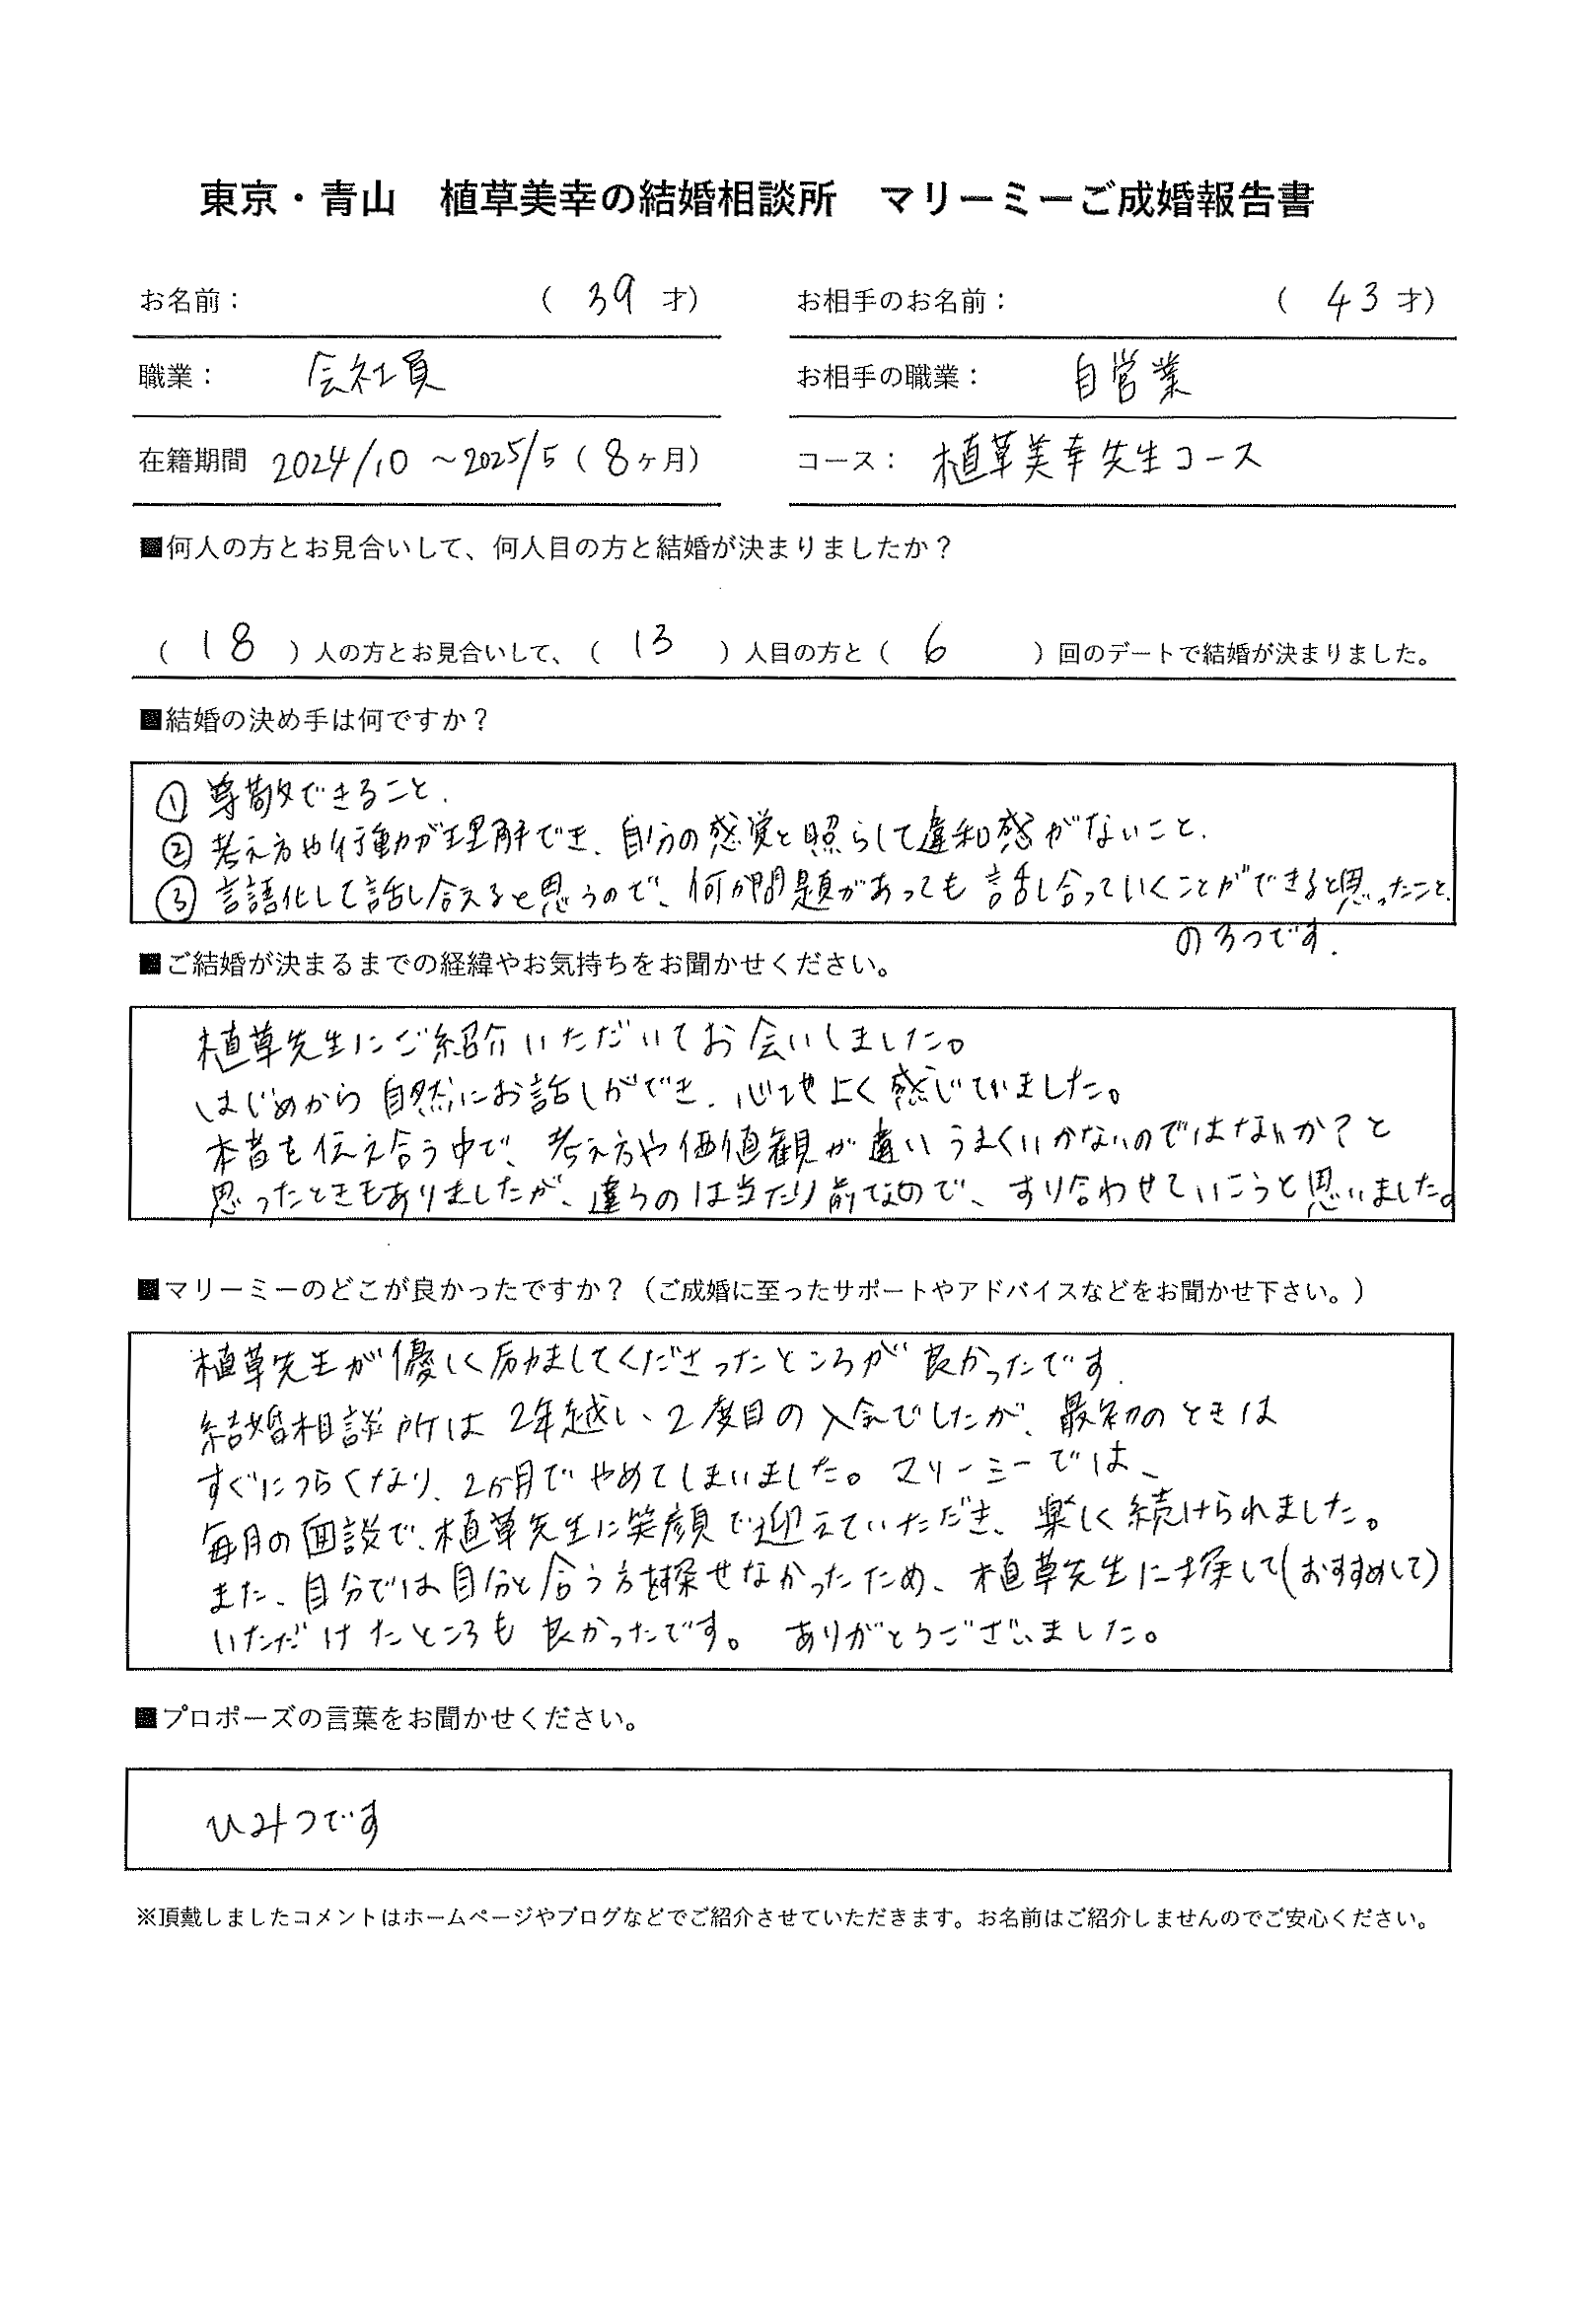 東京・青山　植草美幸の結婚相談所　マリーミーご成婚報告書
お名前：　（ 39 才）　お相手のお名前：　（ 43 才）
職業：　会社員　お相手の職業：　自営業
在籍期間　2024/10 〜2025/5（ 8ヶ月）　コース：　植草美幸先生コース
■何人の方とお見合いして、何人目の方と結婚が決まりましたか？
（ 18 ）人の方とお見合いして、（ 13 ）人目の方と（ 6 ）回のデートで結婚が決まりました。
■結婚の決め手は何ですか？
① 尊敬できること.
② 考え方や行動が理解でき、自分の感覚と照らして違和感がないこと.
③ 言語化して話し合えると思うので、何か問題があっても話し合っていくことができると思ったこと.
の3つです.
■ご結婚が決まるまでの経緯やお気持ちをお聞かせください。
植草先生にご紹介いただいてお会いしました。
はじめから自然にお話しができ、心地よく感じていました。
本音を伝え合う中で、考え方や価値観が違いうまくいかないのではないか？と
思ったときもありましたが、違うのは当たり前なので、すり合わせていこうと思いました。
■マリーミーのどこが良かったですか？（ご成婚に至ったサポートやアドバイスなどをお聞かせ下さい。）
植草先生が優しく励ましてくださったところが良かったです.
結婚相談所は2年越し、2度目の入会でしたが、最初のときは
すぐにつらくなり、2か月でやめてしまいました。マリーミーでは、
毎月の面談で、植草先生に笑顔で迎えていただき、楽しく続けられました。
また、自分では自分と合う方を探せなかったため、植草先生に探して(おすすめして)
いただけたところも良かったです。　ありがとうございました。
■プロポーズの言葉をお聞かせください。
ひみつです
※頂戴しましたコメントはホームページやブログなどでご紹介させていただきます。お名前はご紹介しませんのでご安心ください。